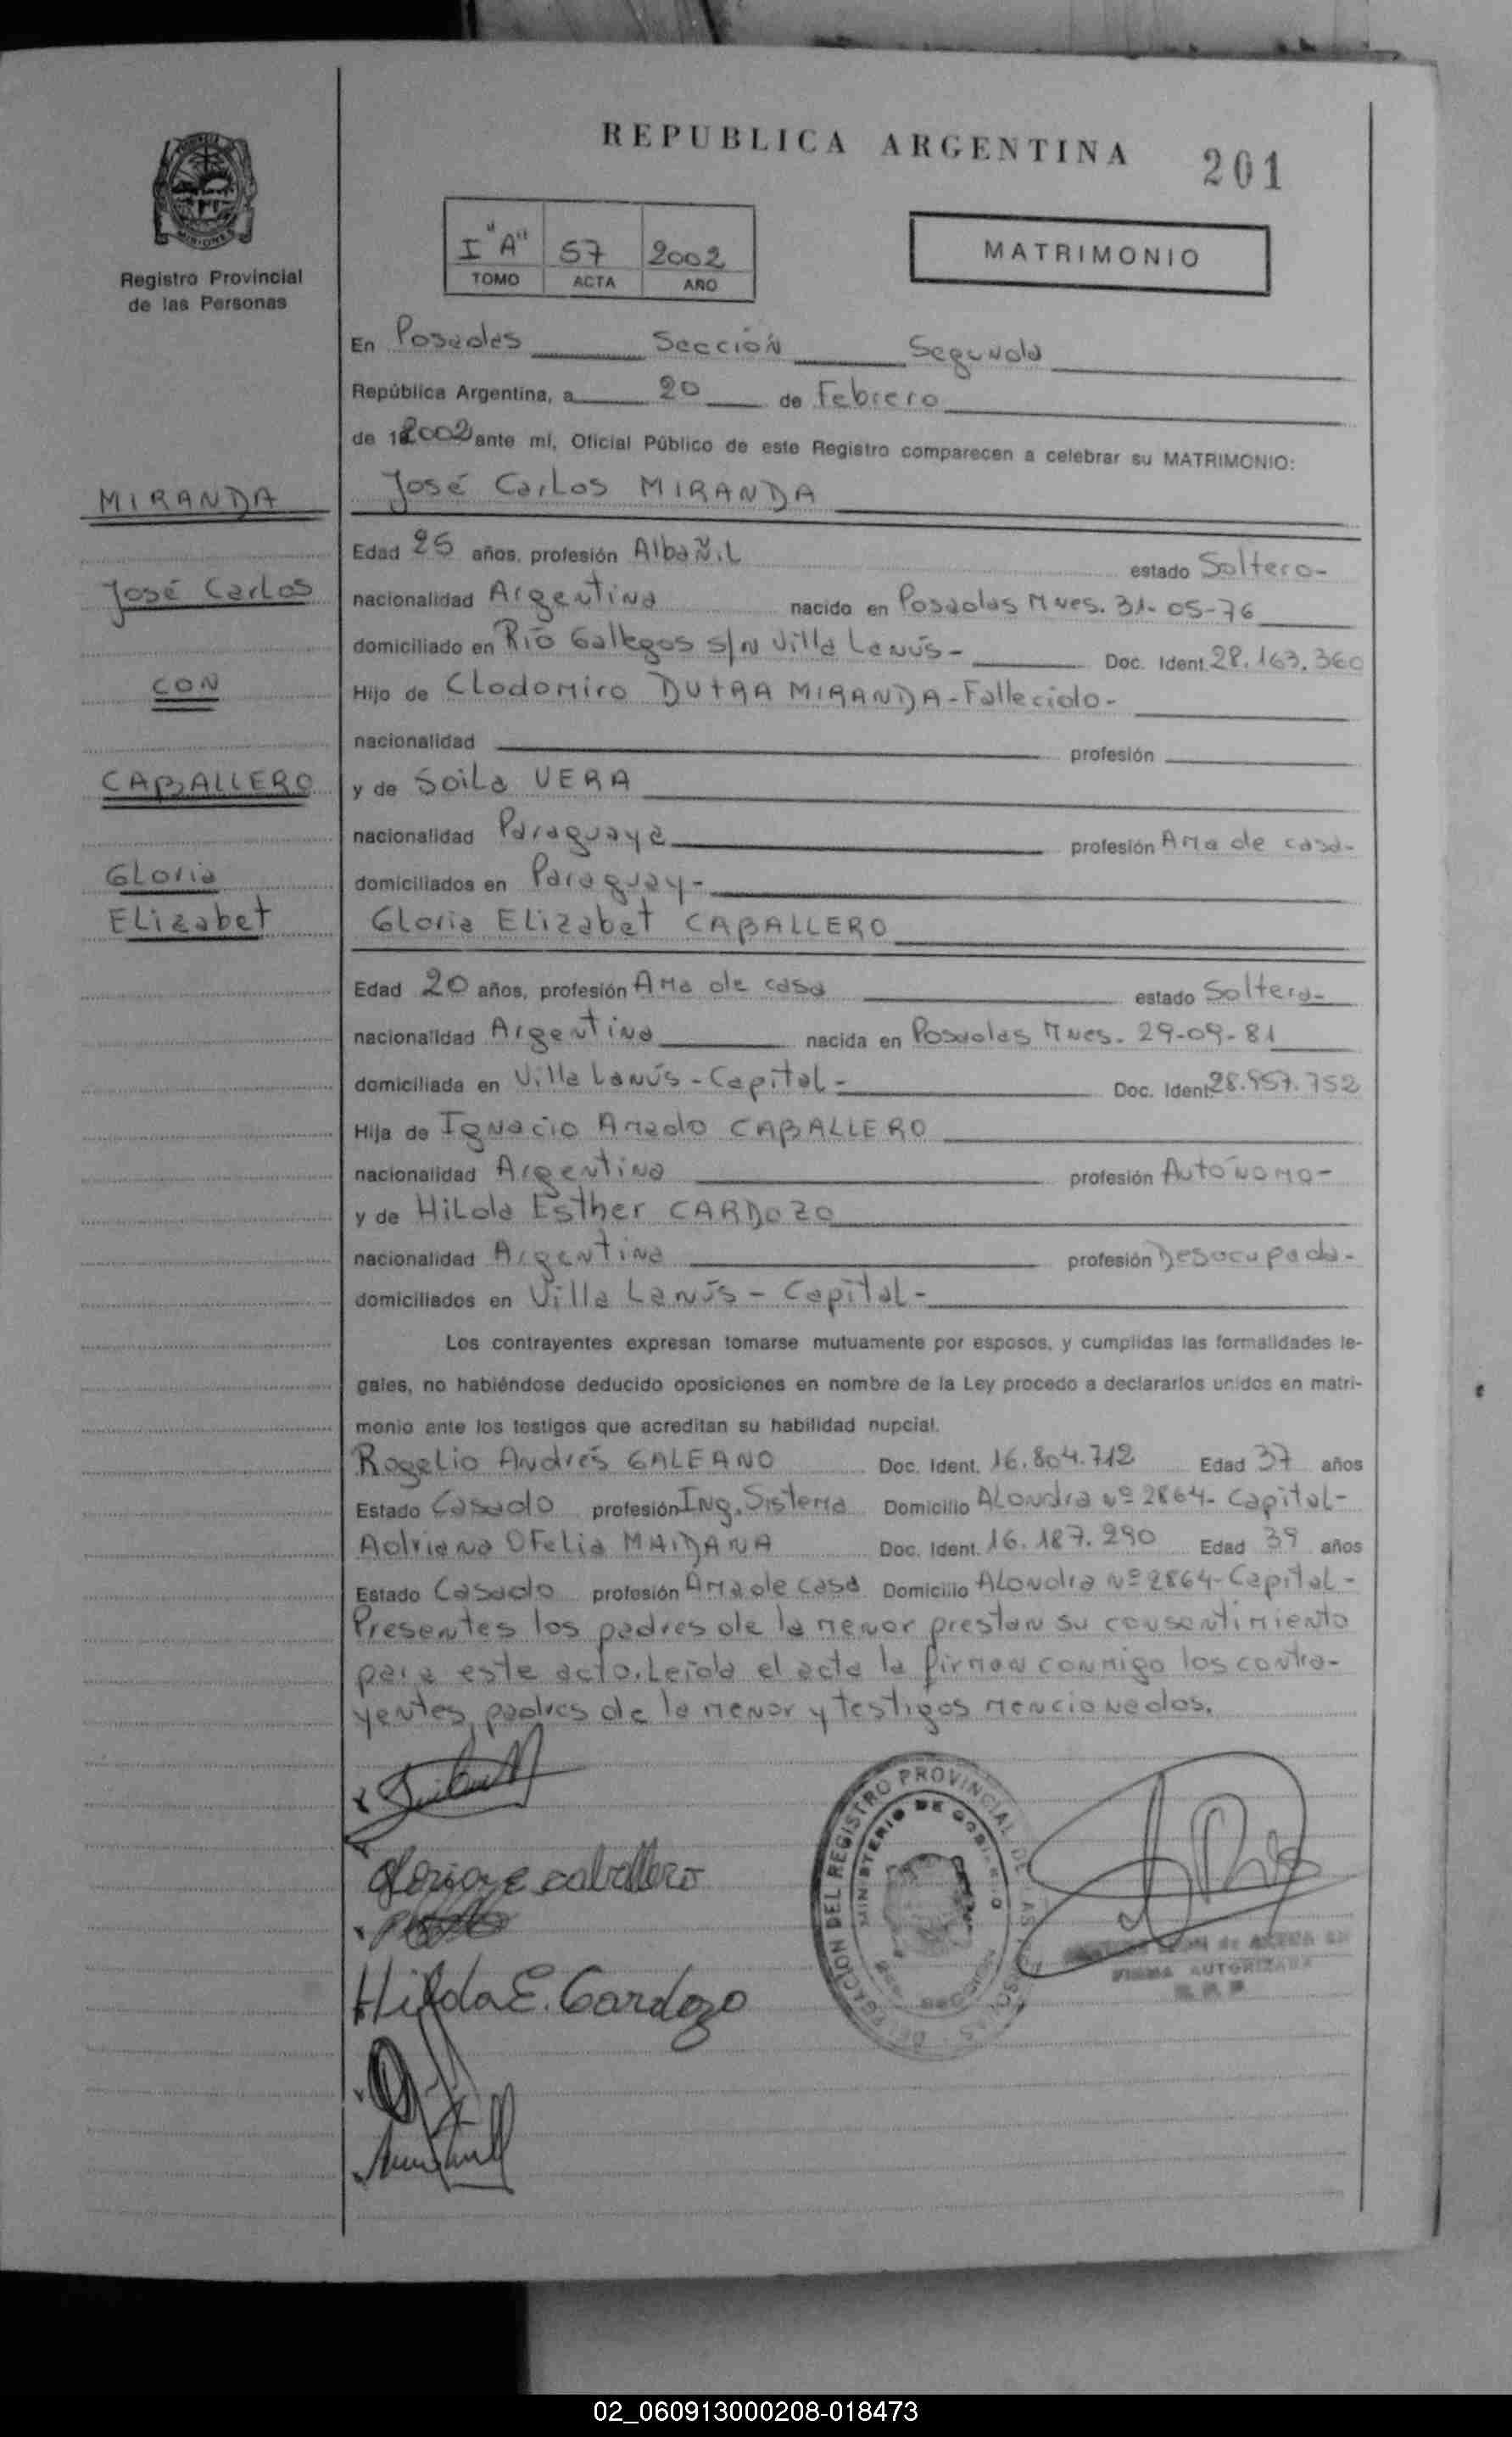 REPUBLICA ARGENTINA
201
MISIONES
Registro Provincial
de las Personas
I "A" 57 2002
TOMO ACTA AÑO
MATRIMONIO
En Posadas Sección Segunda
República Argentina, a 20 de Febrero
de 2002 ante mí, Oficial Público de este Registro comparecen a celebrar su MATRIMONIO:
MIRANDA
José Carlos
CON
CABALLERO
Gloria
Elizabet
José Carlos MIRANDA
Edad 25 años, profesión Albañil estado Soltero-
nacionalidad Argentina nacido en Posadas Mnes. 31-05-76
domiciliado en Río Gallegos s/n Villa Lanús- Doc. Ident. 28.163.360
Hijo de Clodomiro DUTRA MIRANDA-Fallecido-
nacionalidad profesión
y de Soila VERA
nacionalidad Paraguaya profesión Ama de casa-
domiciliados en Paraguay-
Gloria Elizabet CABALLERO
Edad 20 años, profesión Ama de casa estado Soltera-
nacionalidad Argentina nacida en Posadas Mnes. 29-09-81
domiciliada en Villa Lanús-Capital- Doc. Ident. 28.957.752
Hija de Ignacio Amado CABALLERO
nacionalidad Argentina profesión Autónomo-
y de Hilda Esther CARDOZO
nacionalidad Argentina profesión Desocupada-
domiciliados en Villa Lanús - Capital-
Los contrayentes expresan tomarse mutuamente por esposos, y cumplidas las formalidades le-
gales, no habiéndose deducido oposiciones en nombre de la Ley procedo a declararlos unidos en matri-
monio ante los testigos que acreditan su habilidad nupcial.
Rogelio Andrés GALEANO Doc. Ident. 16.804.712 Edad 37 años
Estado Casado profesión Ing. Sistema Domicilio Alondra nº 2864- Capital-
Adriana Ofelia MAIDANA Doc. Ident. 16.187.290 Edad 39 años
Estado Casado profesión Ama de casa Domicilio Alondra Nº 2864-Capital-
Presentes los padres de la menor prestan su consentimiento
para este acto. Leída el acta la firman conmigo los contra-
yentes, padres de la menor y testigos mencionados.
Gloria e caballero
Hilda E. Cardozo
DELEGACION DEL REGISTRO PROVINCIAL DE LAS PERSONAS
MINISTERIO DE GOBIERNO
MISIONES
FIRMA AUTORIZADA
02_060913000208-018473